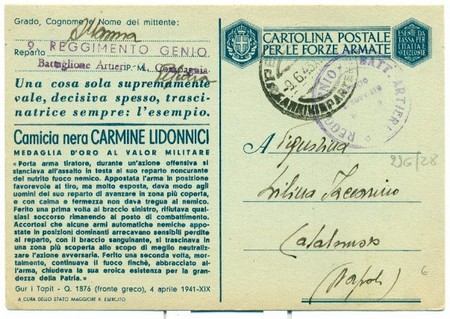 Grado, Cognome e Nome del mittente:
9. REGGIMENTO GENIO
Reparto
Battaglione Artieri - M. Compagnia
Una cosa sola supremamente
vale, decisiva spesso, trasci-
natrice sempre: l'esempio.
Camicia nera CARMINE LIDONNICI
MEDAGLIA D'ORO AL VALOR MILITARE
« Porta arma tiratore, durante un'azione offensiva si
slanciava all'assalto in testa al suo reparto noncurante
del nutrito fuoco nemico. Appostata l'arma in posizione
favorevole al tiro, ma molto esposta, dava modo agli
uomini del suo reparto di avanzare in zona più coperta,
e con calma e fermezza non dava tregua al nemico.
Ferito una prima volta al braccio sinistro, rifiutava qual-
siasi soccorso rimanendo al posto di combattimento.
Accortosi che alcune armi automatiche nemiche appo-
state in posizioni dominanti arrecavano sensibili perdite
al reparto, con il braccio sanguinante, si trascinava in
una zona più scoperta allo scopo di meglio neutraliz-
zare l'azione avversaria. Ferito una seconda volta, mor-
talmente, continuava il fuoco finchè, abbracciato al-
l'arma, chiudeva la sua eroica esistenza per la gran-
dezza della Patria ».
Gur i Topit - Q. 1876 (fronte greco), 4 aprile 1941-XIX
A CURA DELLO STATO MAGGIORE R. ESERCITO
CARTOLINA POSTALE
PER LE FORZE ARMATE
BATT. ARTIERI
A Signorina
296/28
(Napoli)
6